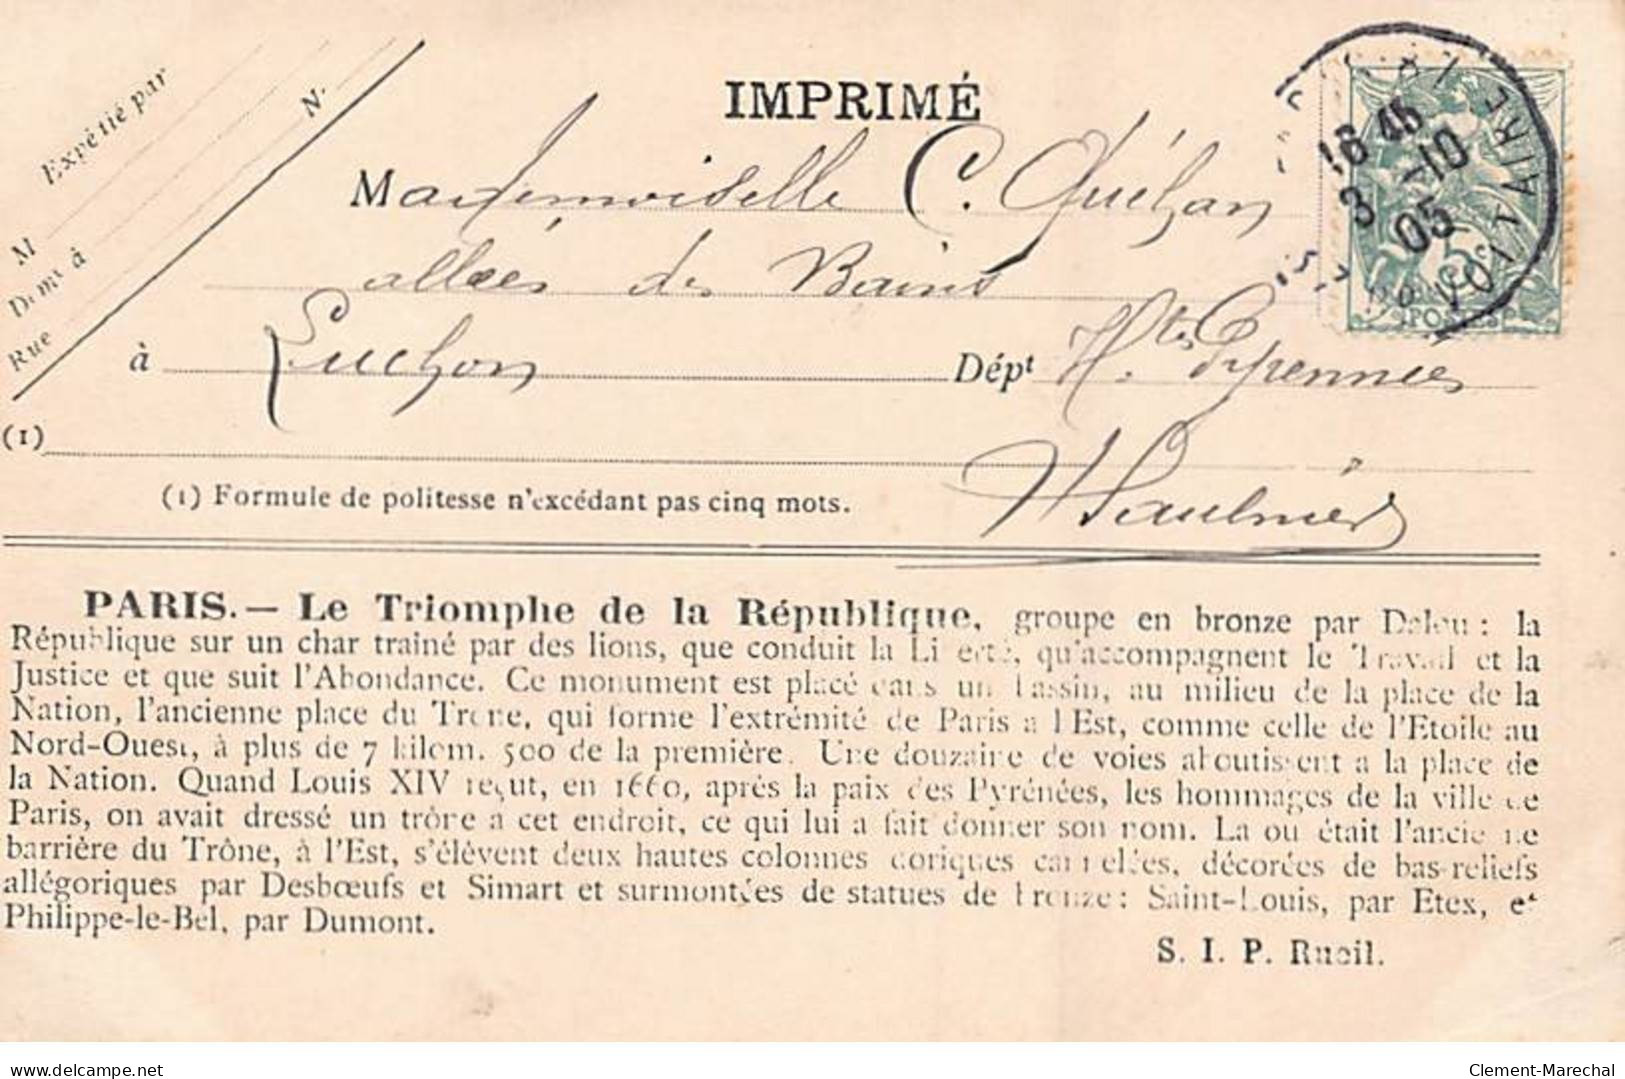 IMPRIMÉ
Expétié par
N.
M
Demt à
Rue
Mademoiselle C.
allées des Bains
à Luchon Dépt Htes Pyrennées
(1)
(1) Formule de politesse n'excédant pas cinq mots.
Saulnier
16 45
3 -10
05
VOLTAIRE
POSTES
PARIS. — Le Triomphe de la République, groupe en bronze par Dalou : la
République sur un char traîné par des lions, que conduit la Liberté, qu'accompagnent le Travail et la
Justice et que suit l'Abondance. Ce monument est placé dans un bassin, au milieu de la place de la
Nation, l'ancienne place du Trône, qui forme l'extrémité de Paris à l'Est, comme celle de l'Etoile au
Nord-Ouest, à plus de 7 kilom. 500 de la première. Une douzaine de voies aboutissent a la place de
la Nation. Quand Louis XIV reçut, en 1660, après la paix des Pyrénées, les hommages de la ville de
Paris, on avait dressé un trône a cet endroit, ce qui lui a fait donner son nom. La ou était l'ancienne
barrière du Trône, à l'Est, s'élèvent deux hautes colonnes doriques cannelées, décorées de bas-reliefs
allégoriques par Desbœufs et Simart et surmontées de statues de bronze : Saint-Louis, par Etex, et
Philippe-le-Bel, par Dumont.
S. I. P. Rueil.
delcampe.net
Clement-Marechal